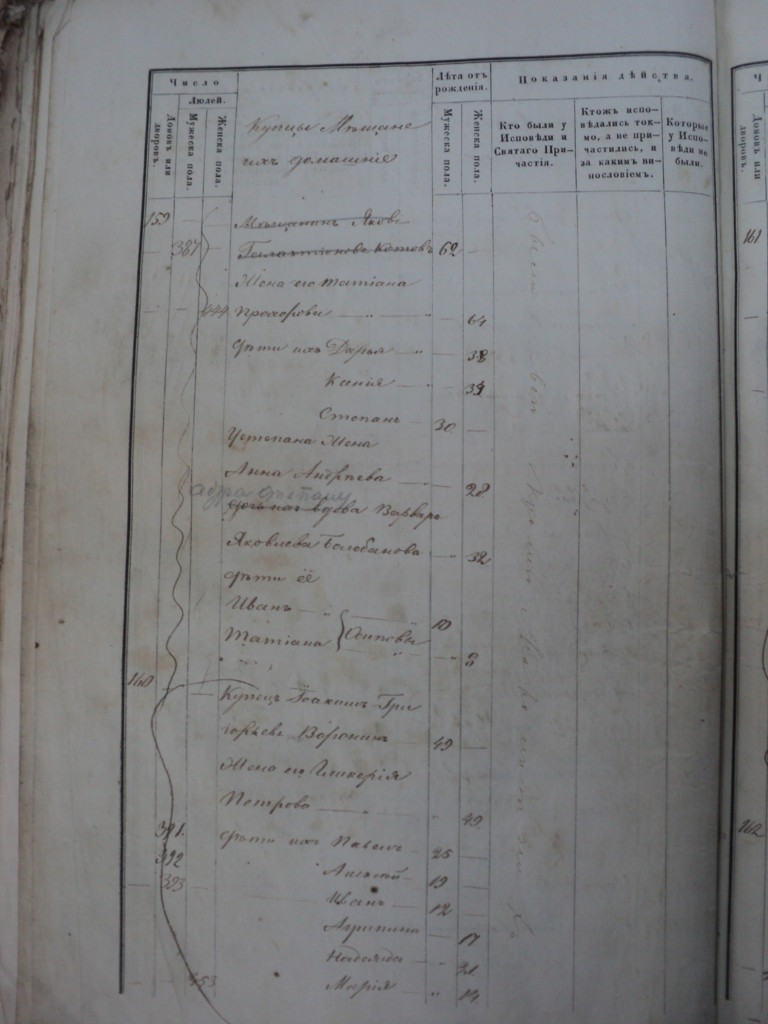 Число
Людей.
Домовъ или дворовъ.
Мужеска пола.
Женска пола.
Купцы Мѣщане
ихъ домашніе
Лѣта отъ рожденія.
Мужеска пола.
Женска пола.
Показанія дѣйства.
Кто были у Исповѣди и Святаго Причастія.
Ктожъ исповѣдались токмо, а не причастились, и за какимъ винословіемъ.
Которые у Исповѣди не были.
159 Мѣщанинъ Яковъ
387 Котовъ 62
Жена его Татіана
444 Прохорова 64
Дѣти ихъ Дарья 38
Ксенія
Степанъ 30
У Степана Жена
Анна Андреева 28
вдова Варвара
Яковлева Балабанова 32
Дѣти её
Иванъ 10
Татіана } Осиповы 3
160
Купецъ Іоакимъ Гри
горьевъ Воронинъ 49
Жена его Гликерія
Петрова 49
391. Дѣти ихъ Павелъ 25
392 Алексѣй 19
393 Иванъ 12
Агрипина 17
Надежда 21
453 Марія 14
161
162